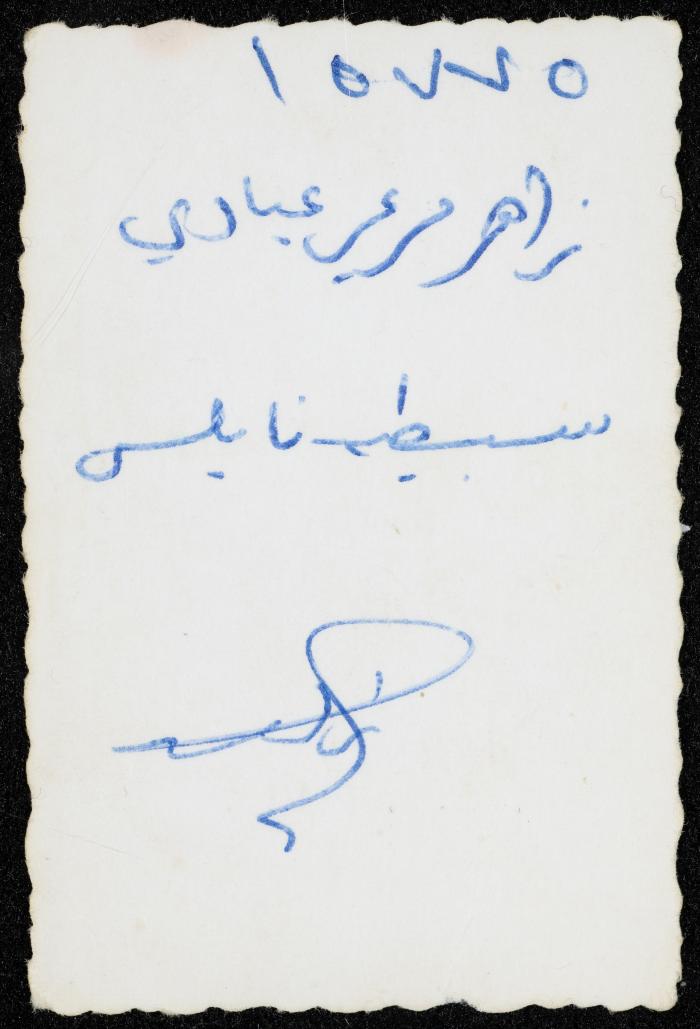 ١٥٧٧٥
زاهر مرعي عبادي
سبسطيه نابلس